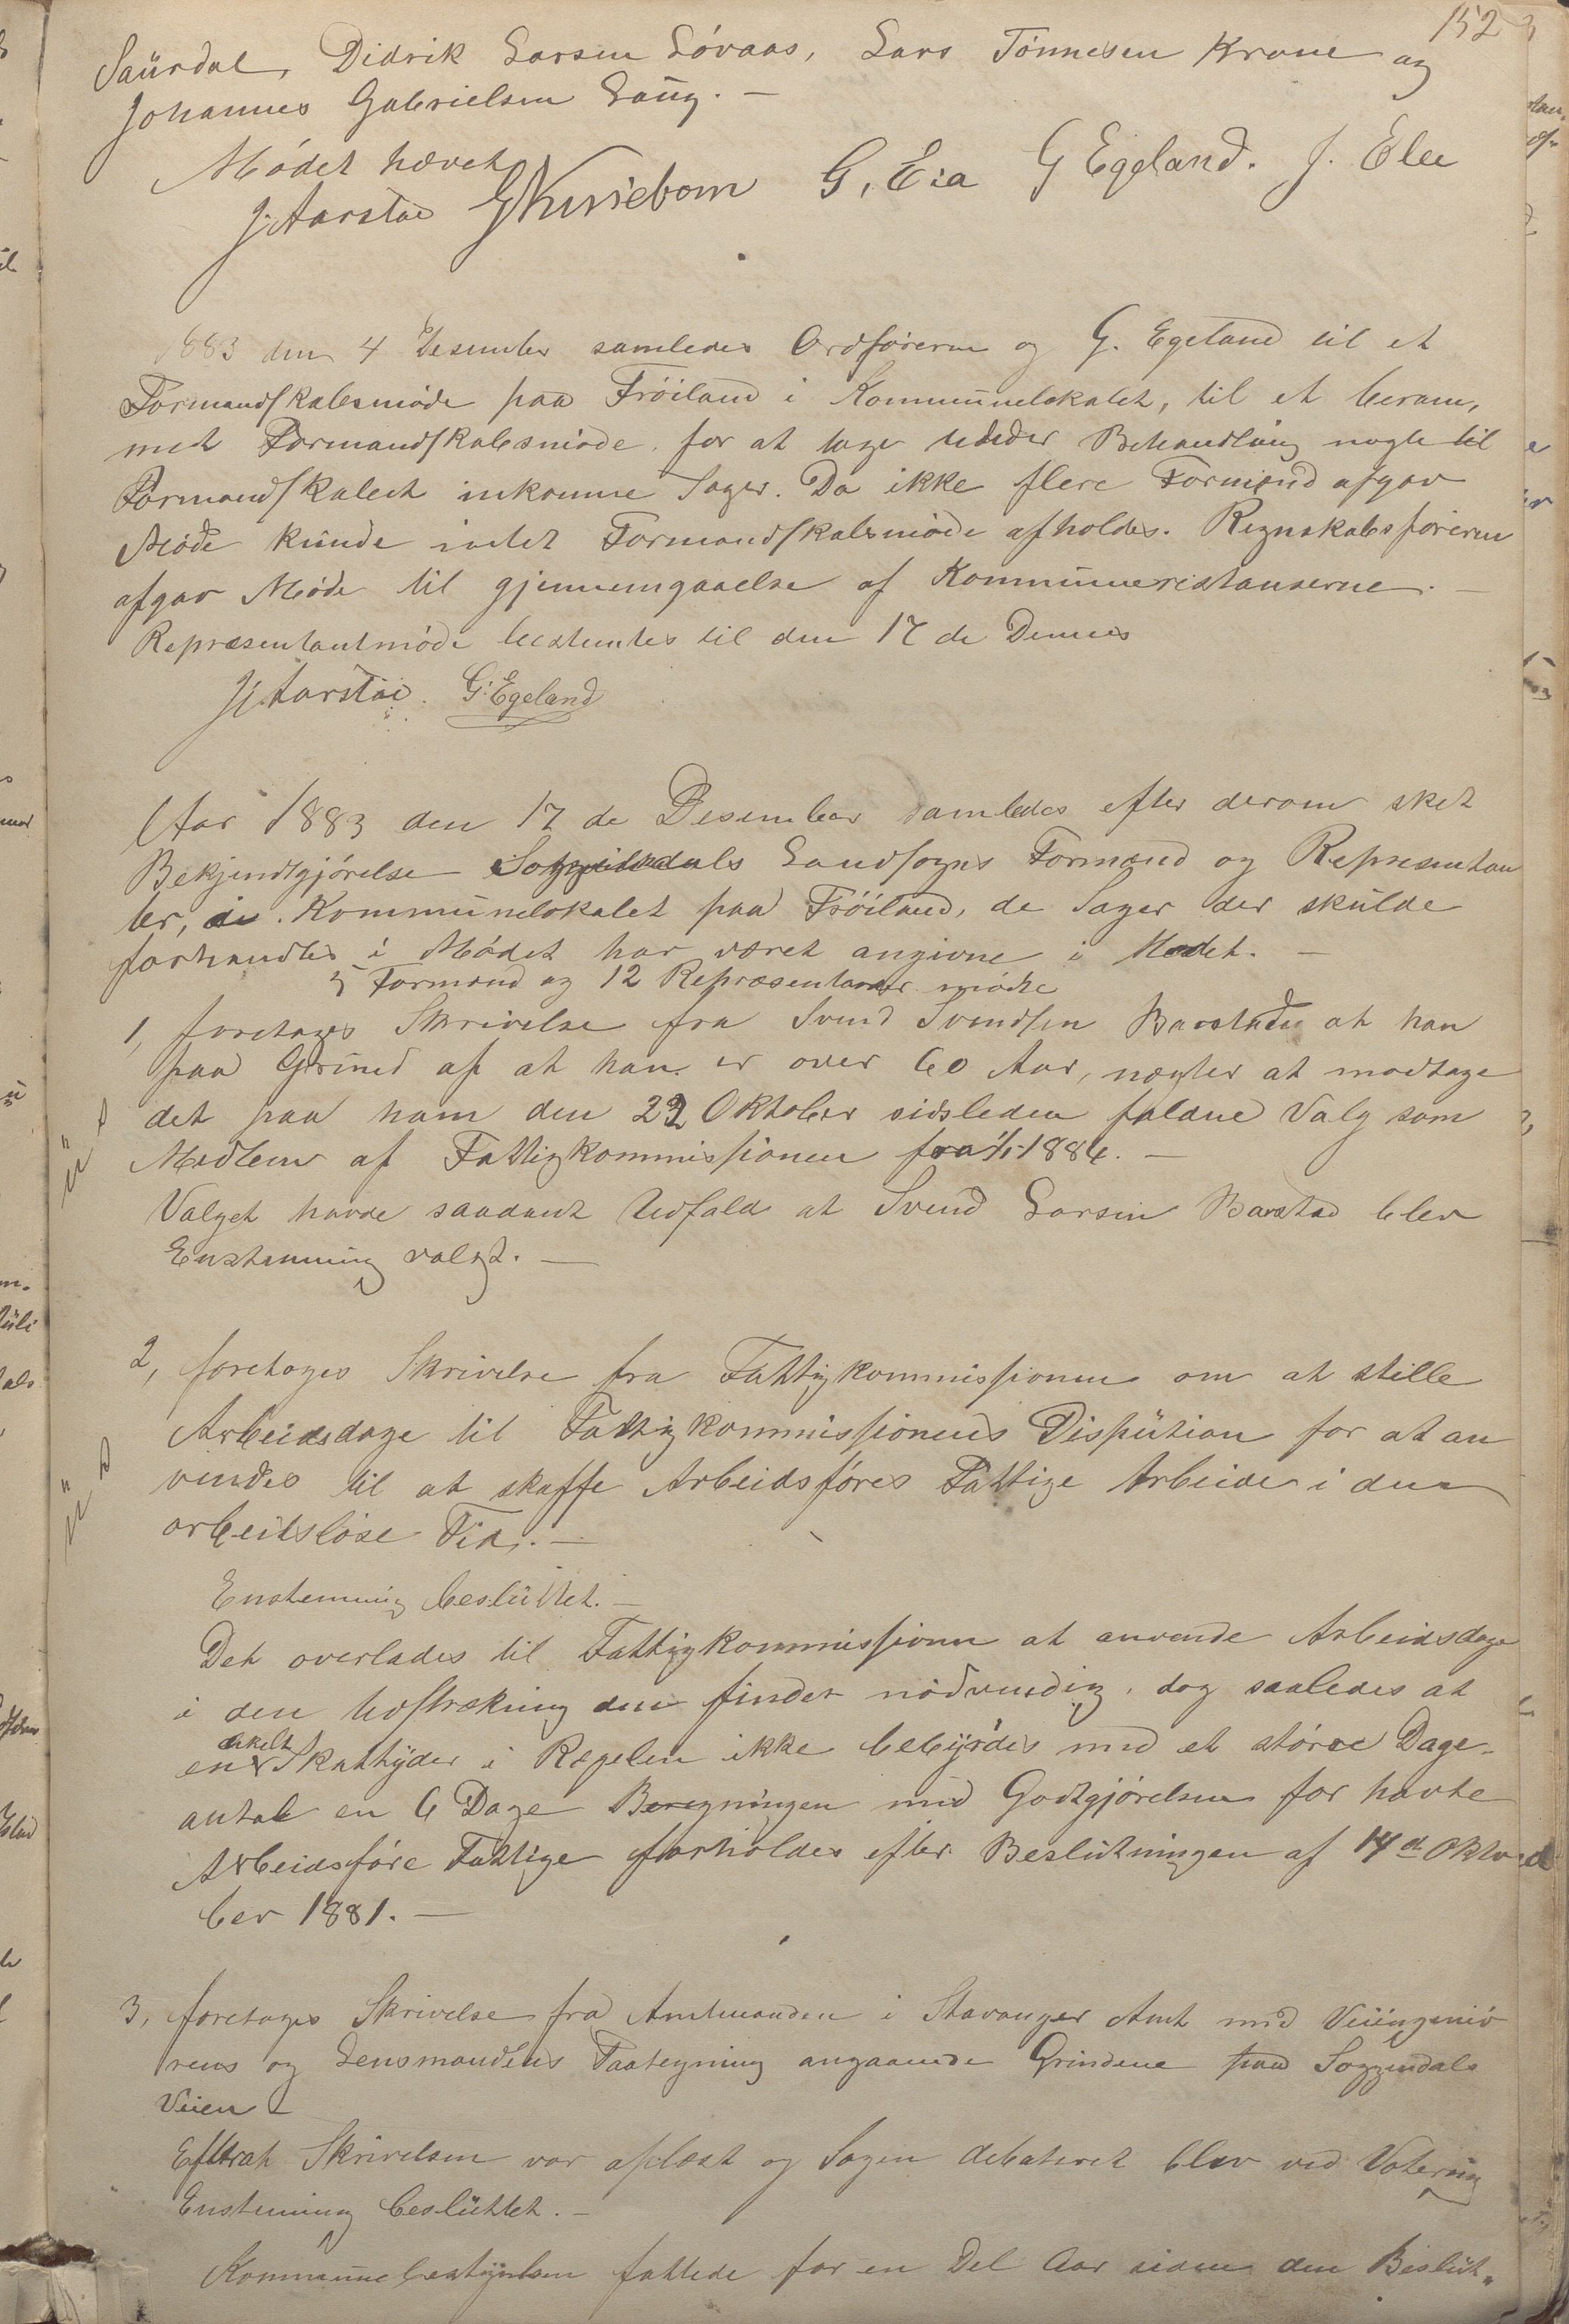 152
Saurdal, Didrik Larsen Løvaas, Lars Tønnesen Krone og
Johannes Gabrielsen Haug. —
Mødet hævet
J. Aarstad G. Eia G Egeland. J. Elle
1883 den 4 Desember samledes Ordføreren og G. Egeland til et
Formandskabsmøde paa Frøiland i Kommunelokalet, til et beram,
met Formandskabsmøde for at tage under Behandling nogle til
Formandskabet inkomne Sager. Da ikke flere Formænd afgav
Møde kunde intet Formandskabsmøde afholdes. Regnskabsføreren
afgav Møde til gjennemgaaelse af Kommunerestanserne. —
Repræsentantmøde bestemtes til den 17 de Dennes
J. Aarstad. G. Egeland
Aar 1883 den 17 de Desember samledes efter derom sket
Bekjendtgjørelse Soggendals Landsogns Formænd og Repræsentan
ter, i Kommunelokalet paa Frøiland, de Sager der skulde
forhandles i Mødet har været angivne i Mødet. —
5 Formænd og 12 Repræsentanter mødte
1, foretages Skrivelse fra Svend Svendsen Barstad at han
paa Grund af at han er over 60 Aar, nægter at modtage
det paa ham den 22 Oktober sidsleden faldne Valg som
Medlem af Fattigkommissionen fra 1/1 1884. —
Valget havde saadant Udfald at Svend Larsen Barstad blev
Enstemmig valgt. —
2, foretages Skrivelse fra Fattigkommissionen om at stille
Arbeidsdage til Fattigkommissionens Disputian for at an
vendes til at skaffe Arbeidsføres Fattige Arbeide i den
arbeidsløse Tid. —
Enstemmig besluttet. —
Det overlades til Fattigkommissionen at anvende Arbeidsdage
i den Udstrækning den finder nødvendig, dog saaledes at
en enkelt Skattyder i Regelen ikke bebyrdes med et større Dage-
antal en 6 Dage Beregningen med Godtgjørelsen for havte
Arbeidsføre Fattige forholdes efter Beslutningen af 14de Okto
ber 1881. —
3, foretages Skrivelse fra Amtmanden i Stavanger Amt med Veiingeniø
rens og Lensmandens Paategning angaaende Grindene paa Soggendals
Veien —
Efterat Skrivelsen var aflæst og Sagen debateret blev ved Votering
Enstemmig besluttet. —
Kommunebestyrelsen fattede for en Del Aar siden den Beslut-